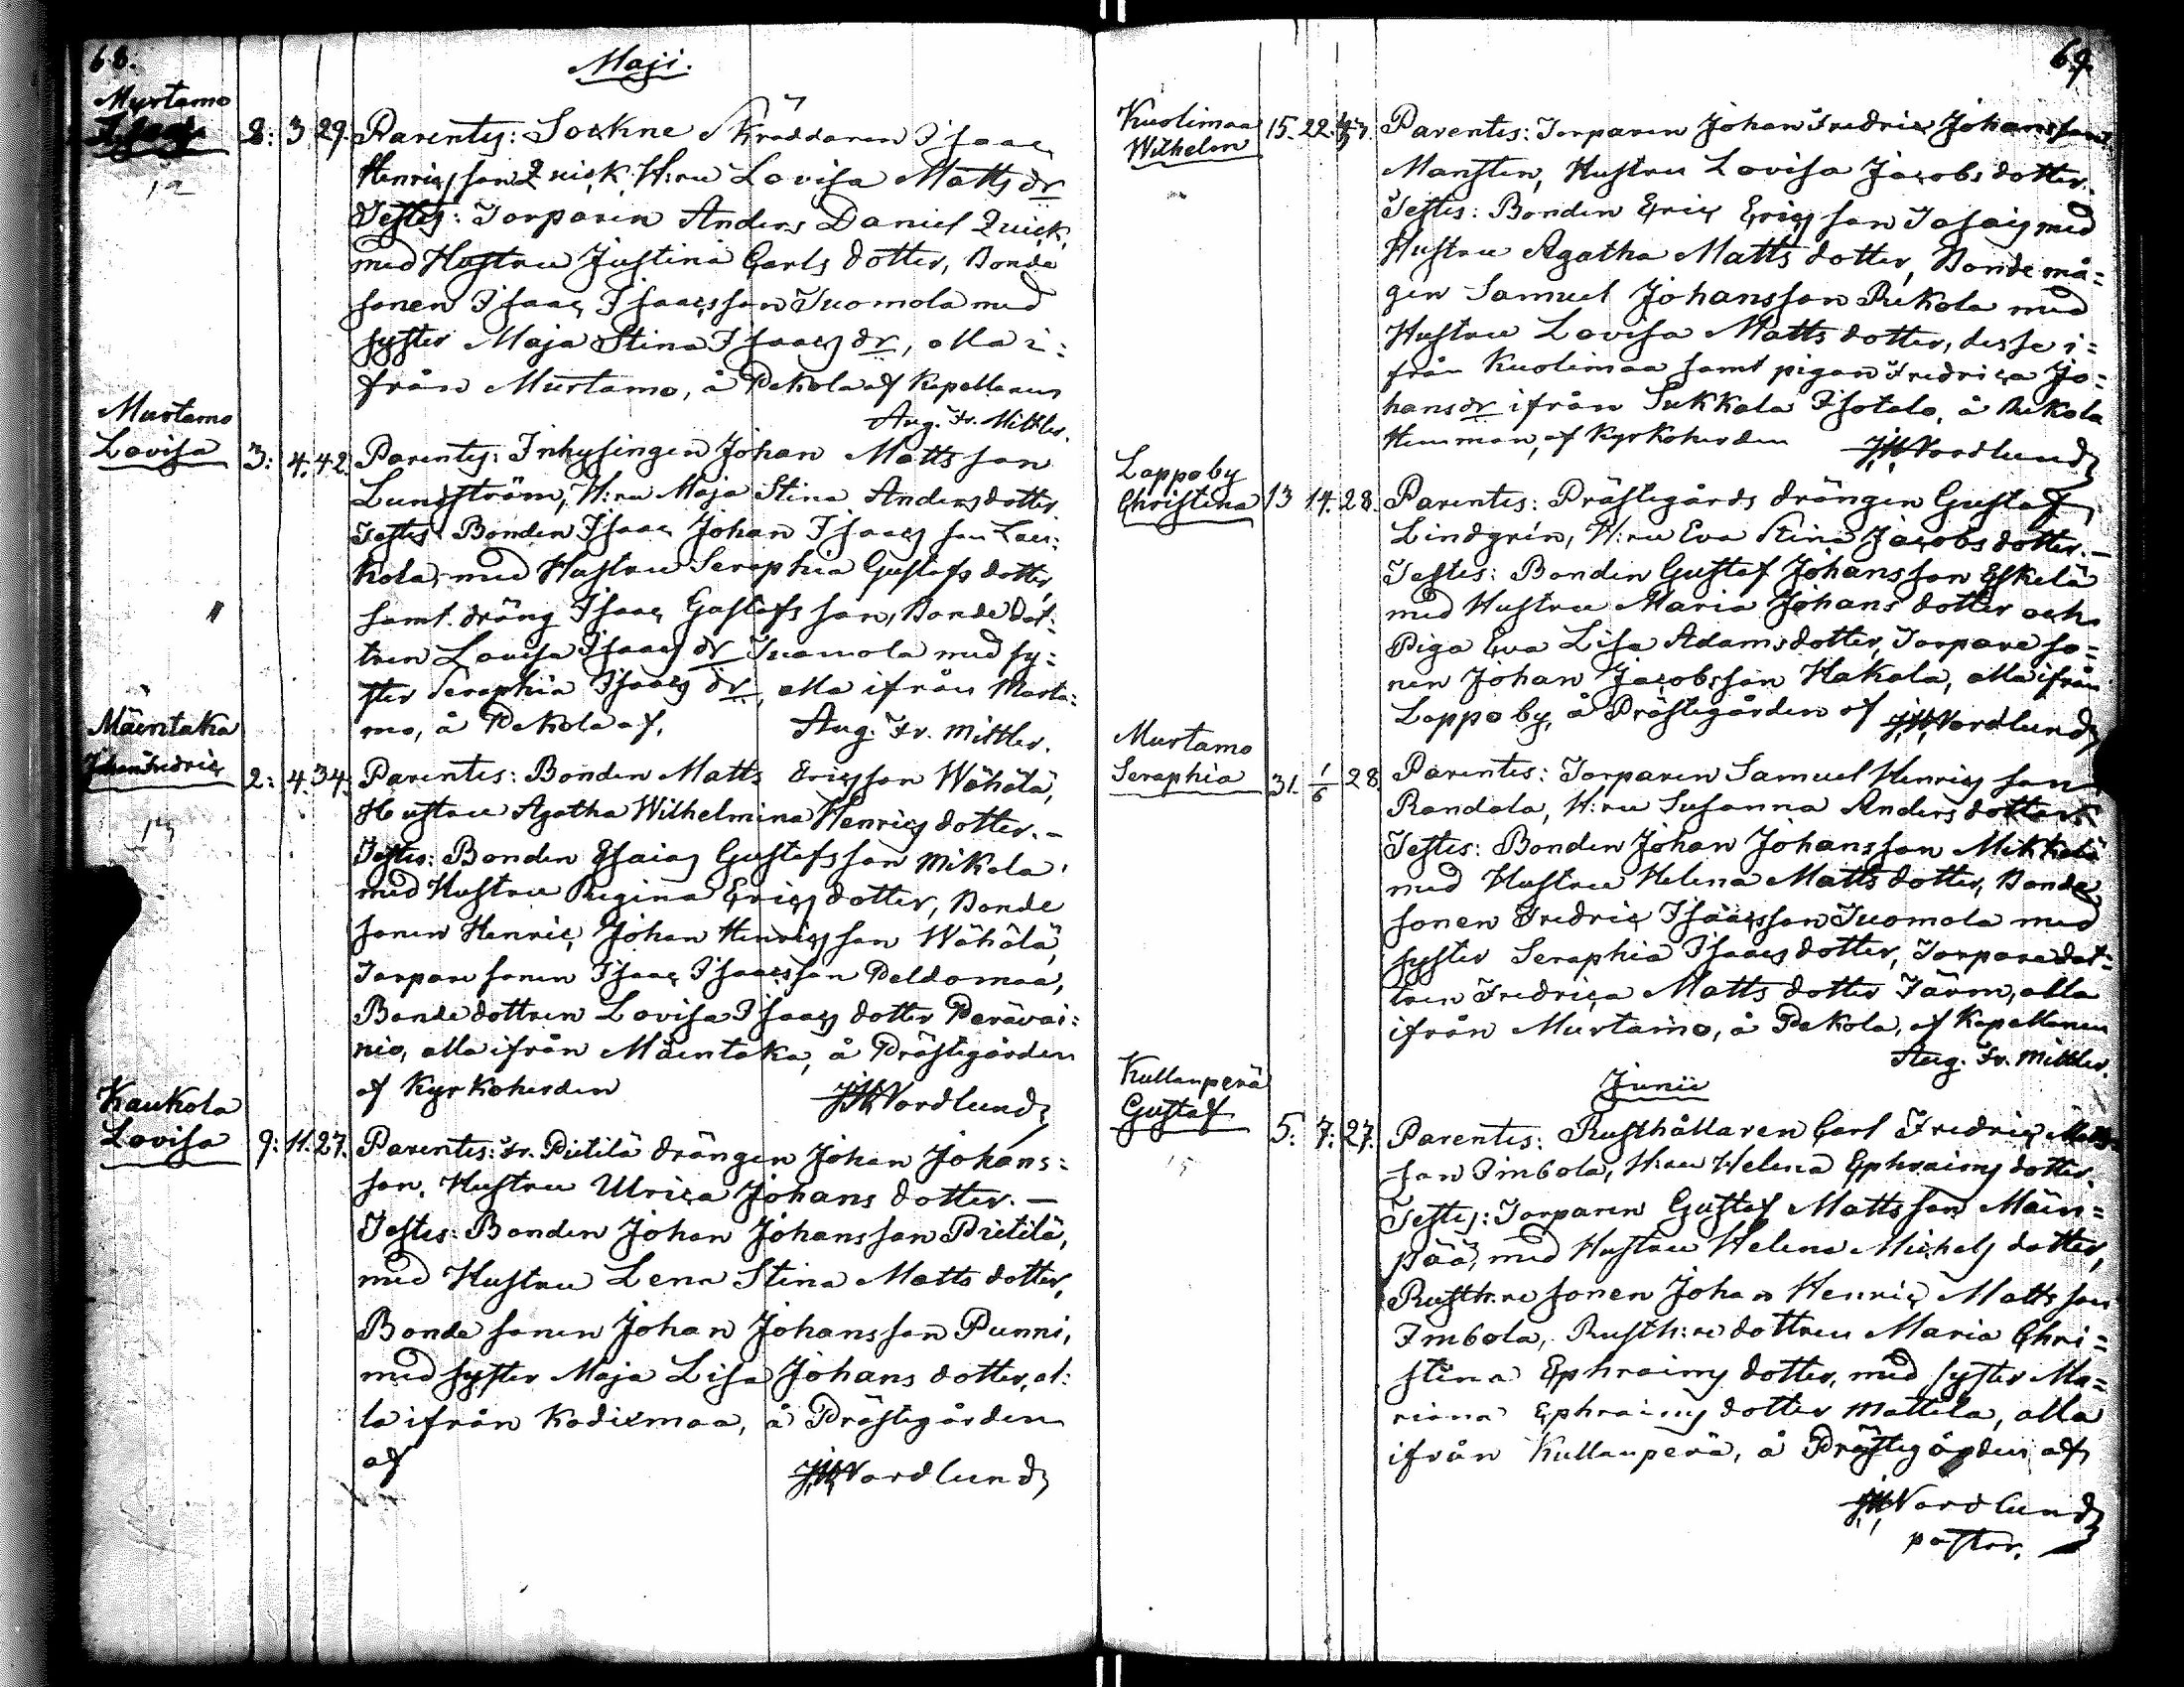 68.
Maji.
Murtamo
Isaac
2: 3 29. Parentes: Sockne Skräddaren Isaac
Henricsson Quick, H:ru Lovisa Matts dr
Testes: Torparen Anders Daniel Quick,
med Hustru Justina Carls dotter, Bonde
sonen Isaac Isaacsson Tuomola med
syster Maja Stina Isaacs dr, alla i:
från Murtamo, å Pekola af Kapellanen
Aug. Fr. Mittler.
Murtamo
Lovisa
3: 4. 42. Parentes: Inhysingen Johan Matts son
Lundström, H:ru Maja Stina Andersdotter
Testes: Bonden Isaac Johan Isaacs son Lau:
kola, med Hustru Seraphia Gustafs dotter,
samt dräng Isaac Gustafs son, Bonde dot:
tren Lovisa Isaacs dr Tuomola med sy:
ster Seraphia Isaacs dr, alla ifrån Murta:
mo, å Pekola af, Aug. Fr. Mittler.
Mäentaka
Johan Fredric
2: 4. 34: Parentes: Bonden Matts Ericsson Wähälä,
Hustru Agatha Wilhelmina Henrics dotter. -
Testes: Bonden Esaias Gustafsson Mikola
med Hustru Regina Erics dotter, Bonde
sonen Henric Johan Henrics son Wähälä,
Torpare sonen Isaac Isaacsson Peldomaa,
Bonde dottren Lovisa Isaacs dotter Perävai:
nio, alla ifrån Mäentaka, å Prästegården
af Kyrkoherden JH Nordlund
Kaukola
Lovisa
9: 11. 27. Parentes: Fr. Pietilä drängen Johan Johans:
son, Hustru Ulrica Johans dotter. -
Testes: Bonden Johan Johansson Pietilä,
med Hustru Lena Stina Matts dotter,
Bonde sonen Johan Johansson Punni,
med syster Maja Lisa Johans dotter, al:
la ifrån Kodixmaa, å Prästegården
af JH Nordlund
69.
Kuolimaa
Wilhelm
15. 22. Parentes: Torparen Johan Fredric Johansson
Mansten, Hustru Lovisa Jacobs dotter.
Testes: Bonden Eric Erics son med
Hustru Agatha Matts dotter, Bonde må=
gen Samuel Johansson Rekola med
Hustru Lovisa Matts dotter, desse i=
från Kuolimaa samt pigan Fredrica Jo=
hans dr ifrån Sukkala Isotalo, å Rekola
Hemman, af Kyrkoherden JH Nordlund
Lappoby
Christina
13 14. 28. Parentes: Prästegårds drängen Gustaf
Lindgrén, H:ru Eva Stina Jacobs dotter. -
Testes: Bonden Gustaf Johansson Eskelä
med Hustru Maria Johans dotter och
Piga Eva Lisa Adamsdotter, Torpare so=
nen Johan Jacobsson Hakala, alla ifrån
Lappoby, å Prästegården af JH Nordlund
Murtamo
Seraphia
31. 1/6 28 Parentes: Torparen Samuel Henrics son
Randala, H:ru Susanna Anders dotter
Testes: Bonden Johan Johansson Mikkola
med Hustru Helena Matts dotter, Bonde
sonen Fredric Isaacsson Tuomola med
syster Seraphia Isaacs dotter, Torpare dot=
tren Fredrica Matts dotter Järm, alla
ifrån Murtamo, å Pekola, af Kapellanen
Aug. Fr. Mittler.
Junii
Kullanperä
Gustaf
5. 7: 27. Parentes: Rusthållaren Carl Fredric Matts
son Imbola, H:ru Helena Ephraims dotter.
Testes: Torparen Gustaf Mattsson Mäen=
pää, med Hustru Helena Michels dotter,
Rusth:re sonen Johan Henric Matts son
Imbola, Rusth:re dottren Maria Chri=
stina Ephraims dotter, med syster Ma=
riana Ephraims dotter Mattila, alla
ifrån Kullanperä, å Prästegården af
JH Nordlund
pastor.